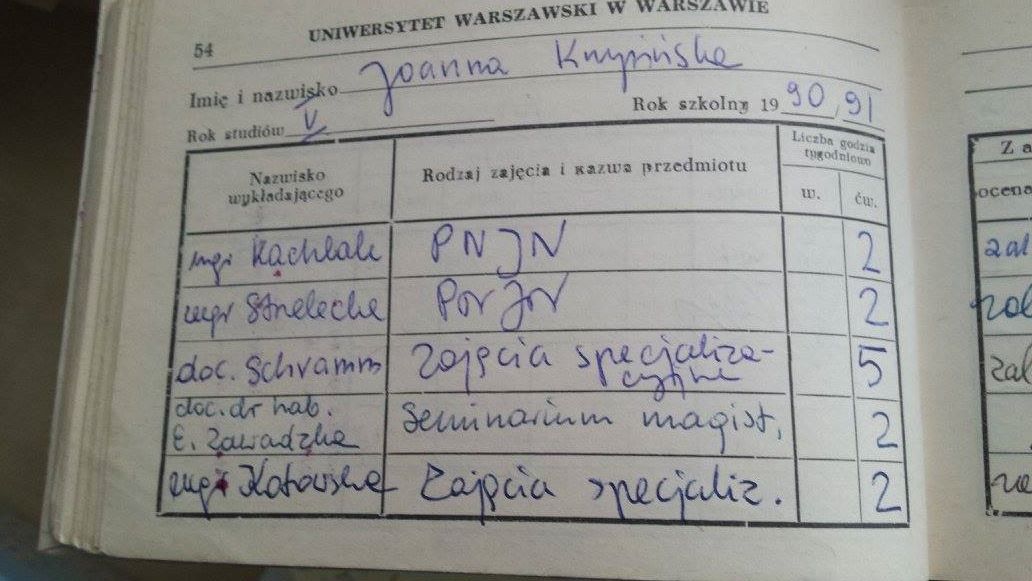 54
UNIWERSYTET WARSZAWSKI W WARSZAWIE
Imię i nazwisko Joanna Knypińska
Rok studiów V Rok szkolny 19 90/91
Nazwisko wykładającego Rodzaj zajęcia i nazwa przedmiotu Liczba godzin tygodniowo
w. ćw.
mgr Kachlak PNJN 2
mgr Strelecka 2
doc. Schramm zajęcia specjaliza-
cyjne 5
doc. dr hab.
E. Zawadzka seminarium magist. 2
mgr Zajęcia specjaliz. 2
Z a
ocena
zal
zal
zal